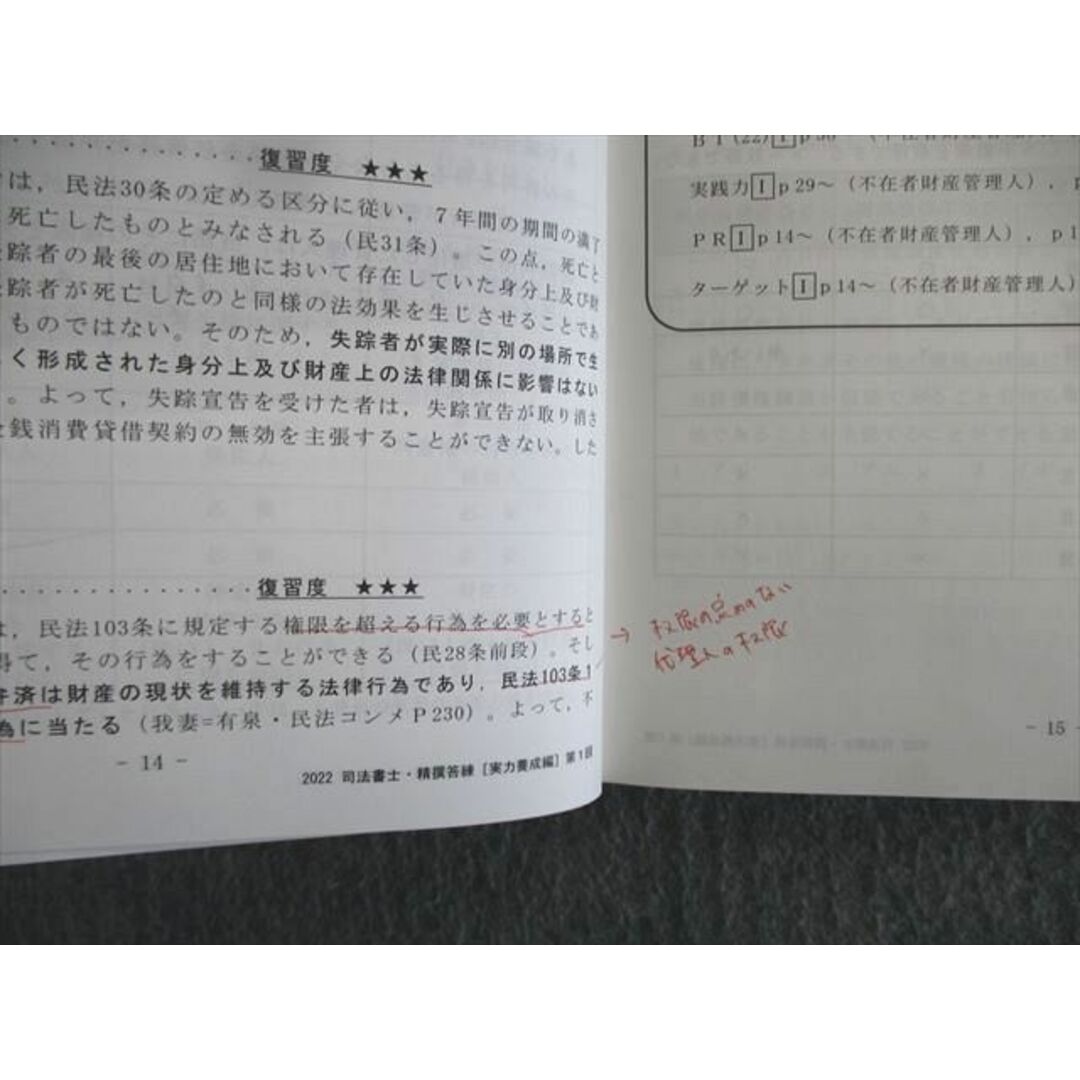 復習度 ★★★
は，民法30条の定める区分に従い，７年間の期間の満了
死亡したものとみなされる（民31条）。この点，死亡と
踪者の最後の居住地において存在していた身分上及び財
踪者が死亡したのと同様の法効果を生じさせることであ
ものではない。そのため，失踪者が実際に別の場所で生
く形成された身分上及び財産上の法律関係に影響はない
。よって，失踪宣告を受けた者は，失踪宣告が取り消さ
銭消費貸借契約の無効を主張することができない。した
復習度 ★★★
は，民法103条に規定する権限を超える行為を必要とすると
得て，その行為をすることができる（民28条前段）。そし
弁済は財産の現状を維持する法律行為であり，民法103条1
為に当たる（我妻=有泉・民法コンメP230）。よって，不
- 14 -
2022 司法書士・精撰答練［実力養成編］第1回
実践力Ⅰp29～（不在者財産管理人），p
PRⅠp14～（不在者財産管理人），p1
ターゲットⅠp14～（不在者財産管理人）
→ 权限の定めのない
代理人の权限
- 15 -